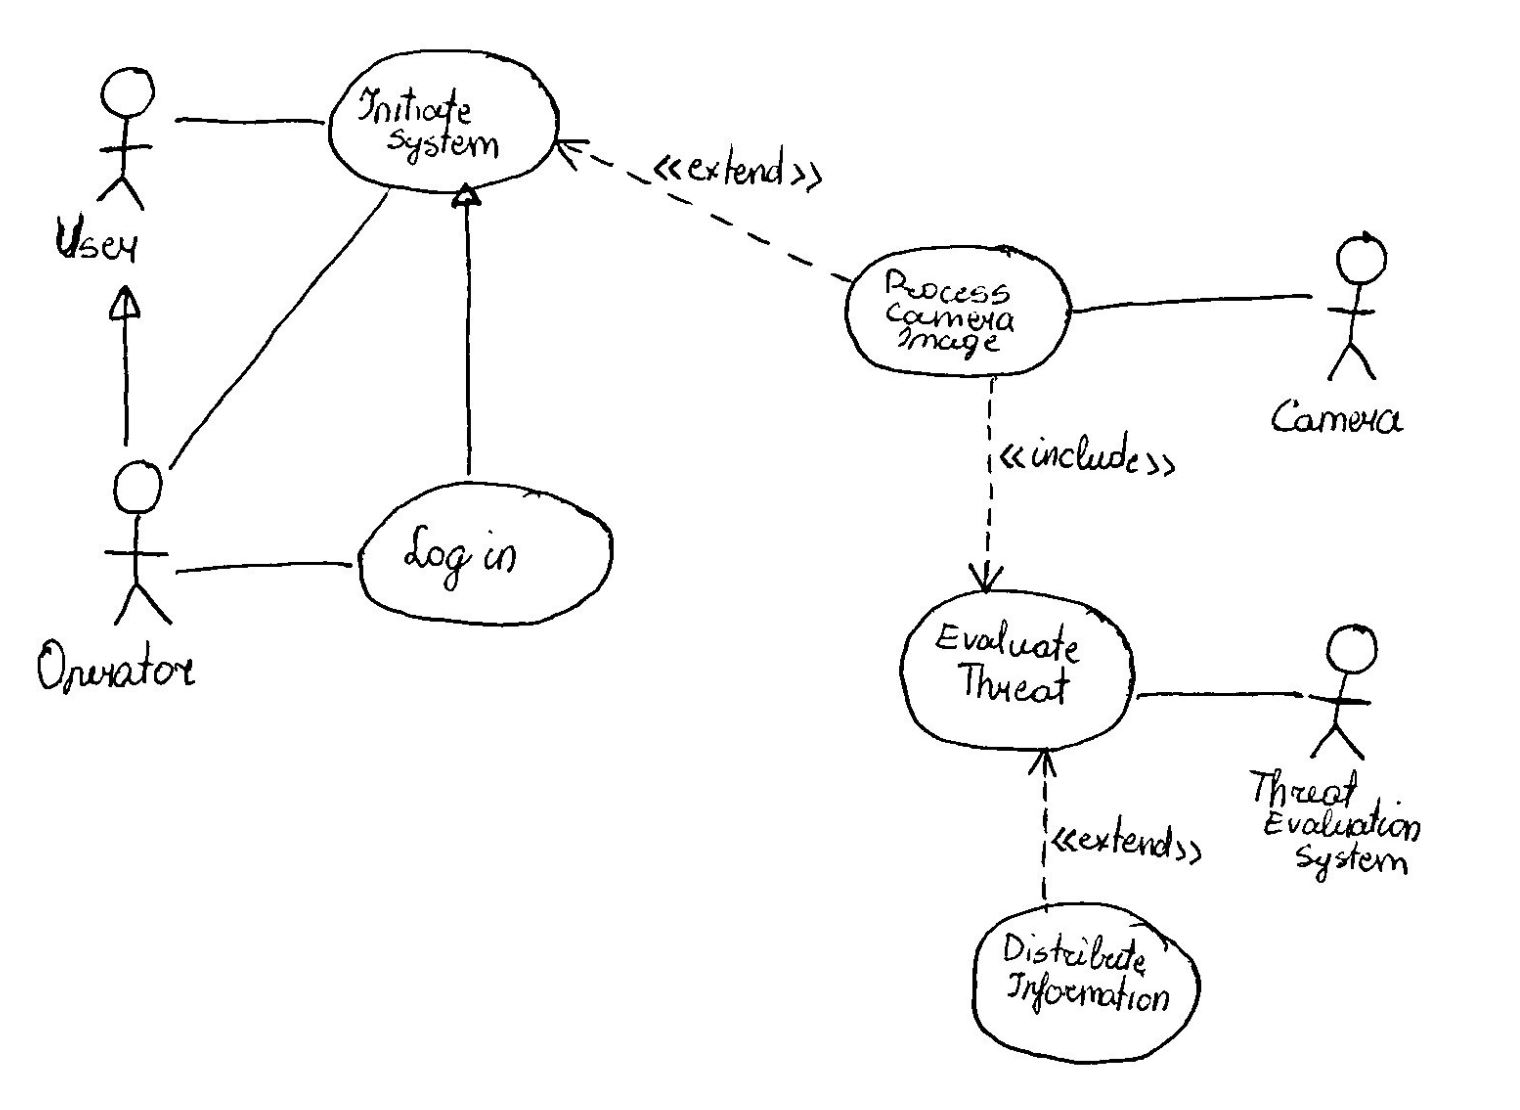 Initiate
System
<<extend>>
User
Process
Camera
Image
Camera
<<include>>
Log in
Evaluate
Threat
Operator
Threat
Evaluation
System
<<extend>>
Distribute
Information